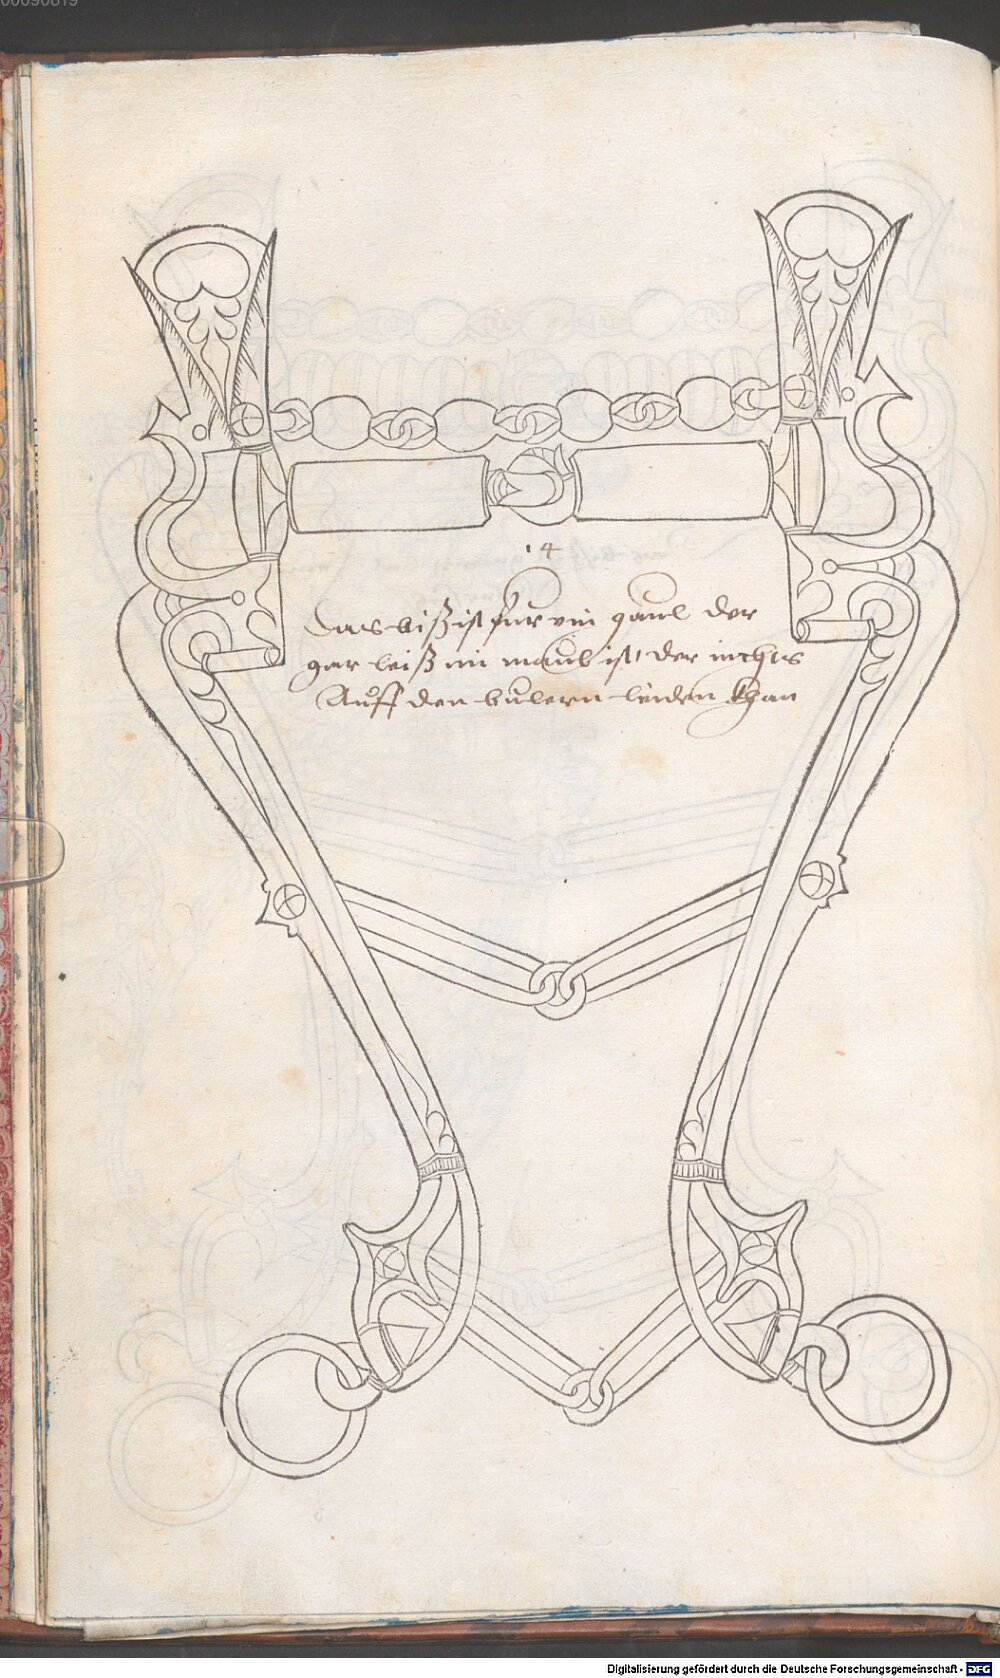 00090819
14
Das biß ist fur ein gaul der
gar leiß im maul ist, der nichts
Auff den bulern leiden khan
Digitalisierung gefördert durch die Deutsche Forschungsgemeinschaft - DFG